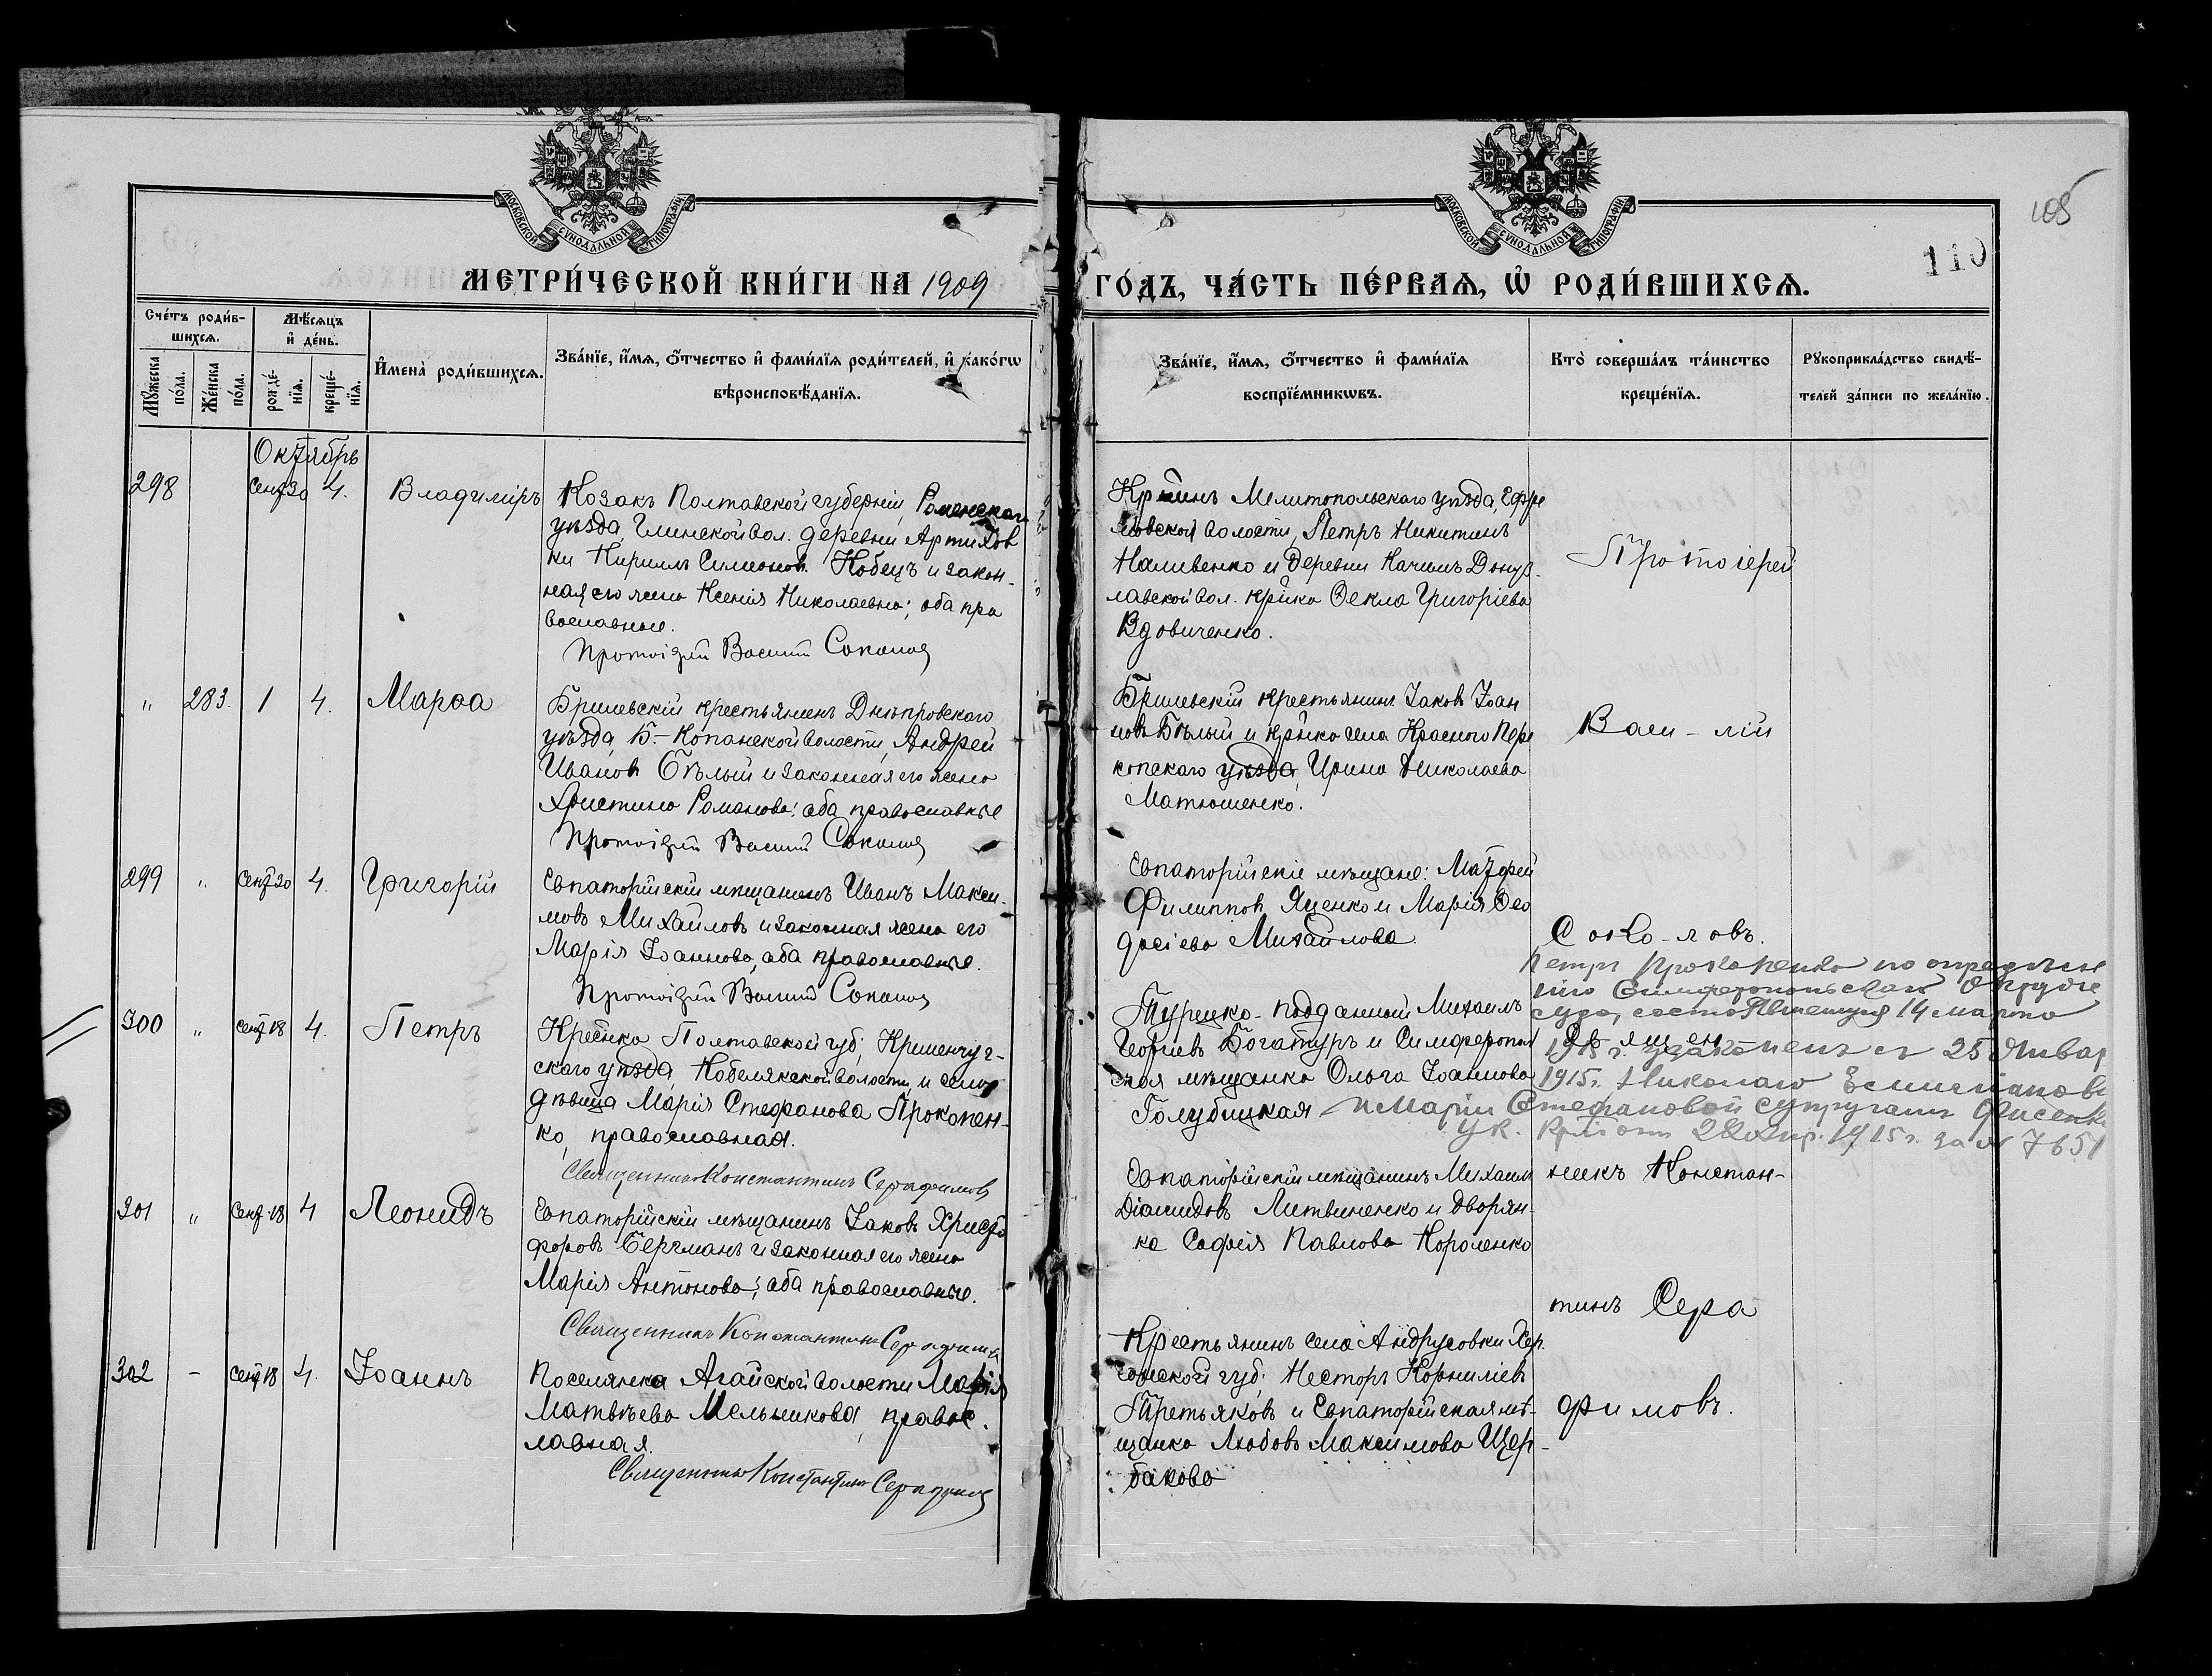 105
110
МОСКОВСКОЙ СѴНОДАЛЬНОЙ ТИПОГРАФІИ
МОСКОВСКОЙ СѴНОДАЛЬНОЙ ТИПОГРАФІИ
МЕТРИ́ЧЕСКОЙ КНИ́ГИ НА 1909 ГО́ДЪ, ЧА́СТЬ ПЕ́РВАѦ, Ѡ҆ РОДИ́ВШИХСѦ.
Сче́тъ роди́в-
шихсѧ.
Мꙋ́жеска по́ла.
Же́нска по́ла.
Мѣ́сѧцъ
и҆ де́нь.
рожде́-нїѧ.
креще́-нїѧ.
И҆мена̀ роди́вшихсѧ.
Зва́нїе, и҆́мѧ, ѻ҆́тчество и҆ фами́лїѧ роди́телей, и҆ како́гѡ
вѣроисповѣ́данїѧ.
Зва́нїе, и҆́мѧ, ѻ҆́тчество и҆ фами́лїѧ
воспрїе́мникѡвъ.
Кто̀ соверша́лъ та́инство
креще́нїѧ.
Рꙋкоприкла́дство свидѣ́-
телей за́писи по жела́нїю.
Октябрь
298 Сент 30 4. Владиміръ
Козакъ Полтавской губерніи, Роменскаго
уѣзда, Глинской вол. деревни Артихов
ки Кирилъ Симеонов. Кобецъ и закон-
ная его жена Ксенія Николаевна; оба пра
вославные.
Протоіерей Василій Соколовъ
Кр-нинъ Мелитопольскаго уѣзда, Ефре
мовской волости, Петръ Никитинъ
Наливенко и деревни Качинъ Донуз-
лавской вол. кр-нка Ѳекла Григоріева
Вдовиченко.
Протоіерей
" 283. 1 4. Марѳа
Брилевскій крестьянинъ Днѣпровскаго
уѣзда Б.-Копанской волости, Андрей
Иванов Бѣлый и законная его жена
Христина Романова: оба православные
Протоіерей Василій Соколовъ
Брилевскій крестьянинъ Іаковъ Іоан
новъ Бѣлый и кр-нка села Краснаго Пере
копскаго уѣзда Ирина Николаева
Матюшенко.
Васи-лій
299 " Сент 30 4. Григорій
Евпаторійскій мѣщанинъ Иванъ Макси-
мовъ Михайловъ и законная жена его
Марія Іоаннова, оба православные.
Протоіерей Василій Соколовъ
Евпаторійскіе мѣщане: Матѳей
Филиппов Яценко и Марія Ѳео
досіева Михайлова.
Соко-ловъ.
300 " сент 18 4. Петръ
Крес-нка Полтавской губ. Кременчуг-
скаго уѣзда, Кобелякской волости, и села
дѣвица Марія Стефанова Прокопен-
ко, православная.
Священникъ Константинъ Серафимовъ
Турецко-подданный Михаилъ
Георгіевъ Богатуръ и Симферополь
ская мѣщанка Ольга Іоаннова
Голубицкая
Священ
Петръ Прокопенко по опредѣлен
ію Симферопольскаго Окружн
суда, состоявшемуся 14 марта
1915 г. узаконенъ съ 25 Январ
1915 г. Николаю Емиліанов
и Маріи Стефановой супругамъ Фисенк
Ук. 28 Апр. 1915 г. за № 7651
301 " Сент 18 4 Леонидъ
Евпаторійскій мѣщанинъ Іаковъ Христо
форовъ Бергманъ и законная его жена
Марія Антонова; оба православные.
Священникъ Константинъ Серафимовъ
Евпаторійскій мѣщанинъ Михаилъ
Діомидовъ Литвиненко и дворян-
ка Софія Павлова Короленко
никъ Констан-
тинъ Сера
302 - сент 18 4. Іоаннъ
Поселянка Агайской волости Марія
Матвѣева Мельникова, правос-
лавная.
Священникъ Константинъ Серафимовъ
Крестьянинъ села Андрусовки Хер.
сонской губ. Несторъ Корниліевъ
Третьяковъ и Евпаторійская мѣ-
щанка Любовь Максимова Щер-
бакова
фимовъ.